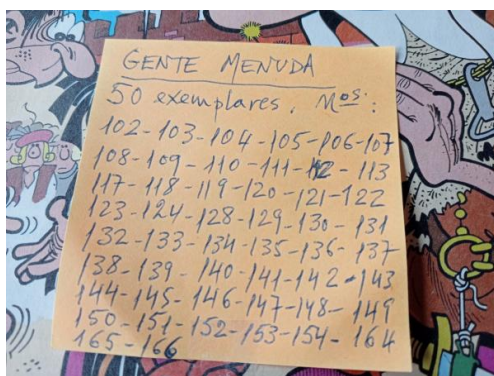 GENTE MENUDA
50 exemplares. Nos:
102-103-104-105-106-107
108-109-110-111-112-113
117-118-119-120-121-122
123-124-128-129-130-131
132-133-134-135-136-137
138-139-140-141-142-143
144-145-146-147-148-149
150-151-152-153-154-164
165-166